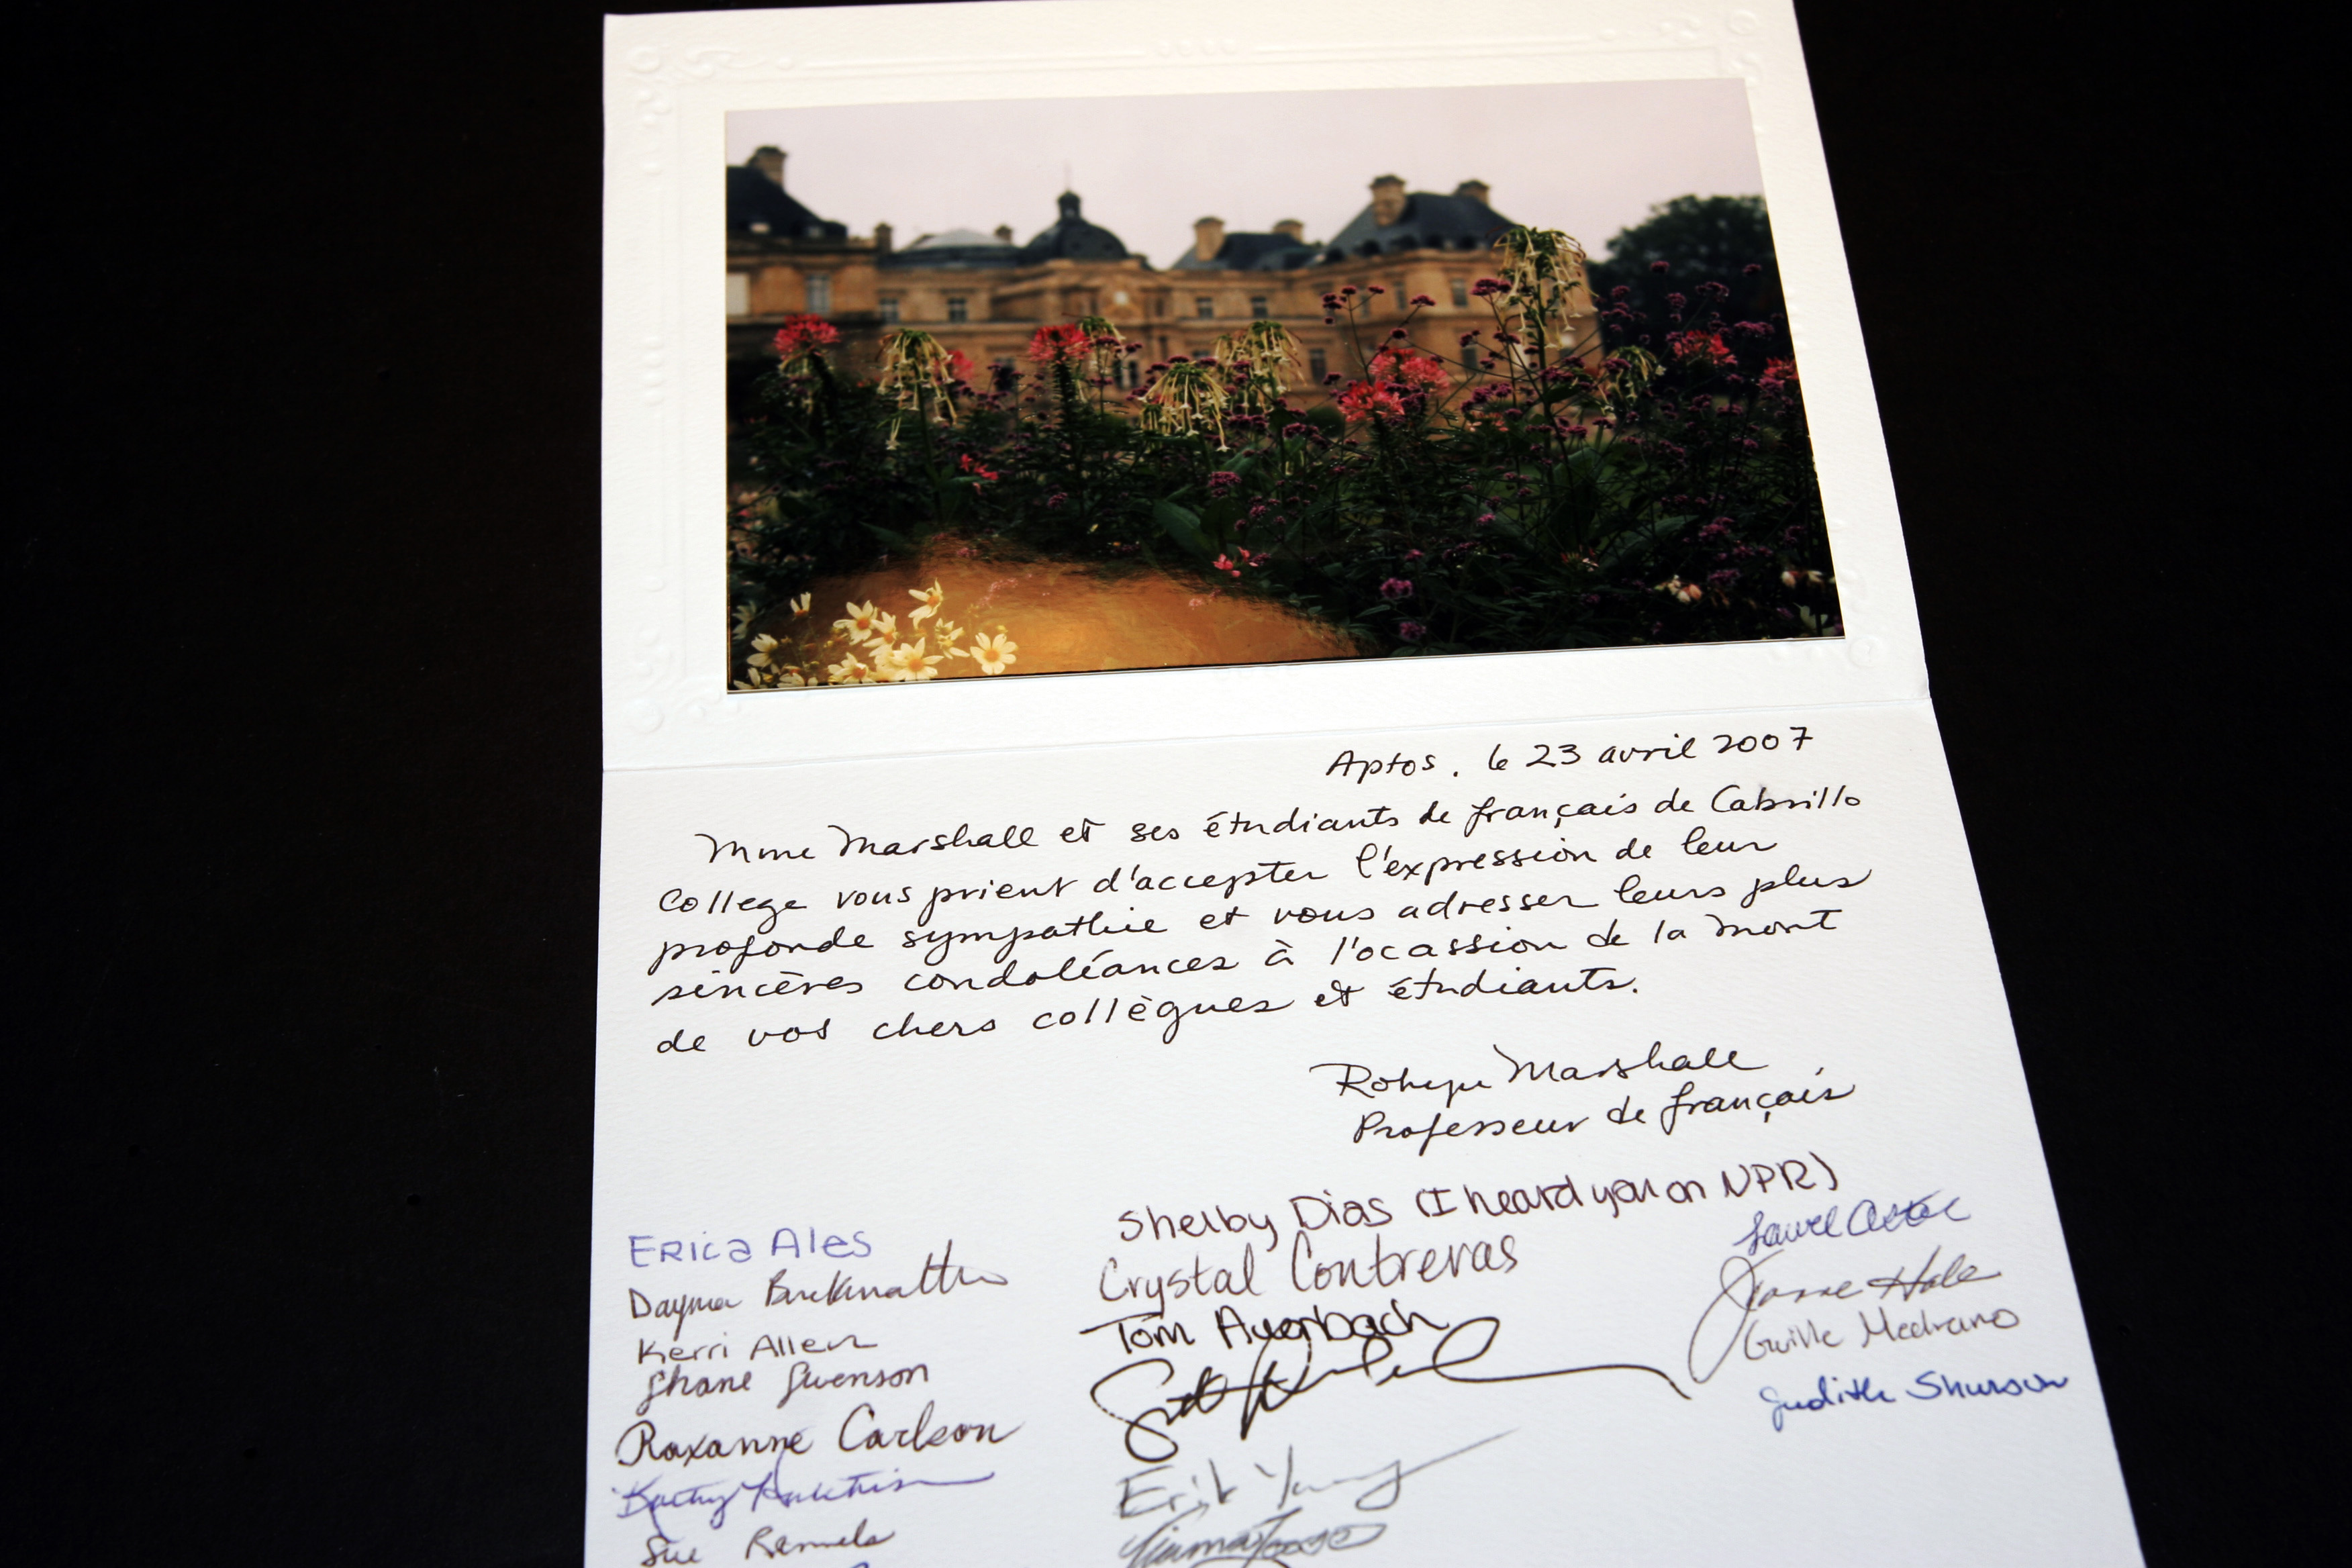 Aptos, le 23 avril 2007
Mme Marshall et ses étudiants de français de Cabrillo
College vous prient d'accepter l'expression de leur
profonde sympathie et vous adresser leurs plus
sincères condoléances à l'ocassion de la mort
de vos chers collègues et étudiants.
Robyn Marshall
Professeur de français
Shelby Dias (I heard you on NPR)
Erica Ales
Crystal Contreras
Dayna
Tom Auerbach
Kerri Allen
Shane Swenson
Roxanne Carlson
Erik Young
Kathy
Sue
Laurel
Jeanne Hale
Guille Medrano
Judith